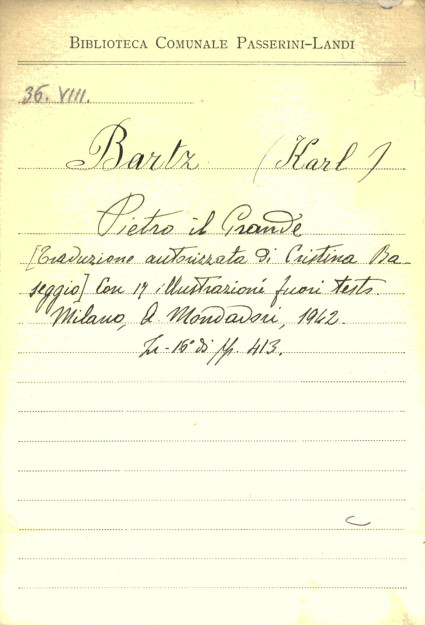 BIBLIOTECA COMUNALE PASSERINI-LANDI
36. VIII.
Bartz (Karl)
Pietro il Grande
[Traduzione autorizzata di Cristina Ba-
seggio] Con 17 illustrazioni fuori testo.
Milano, A. Mondadori, 1942.
In-16° di pp. 413.